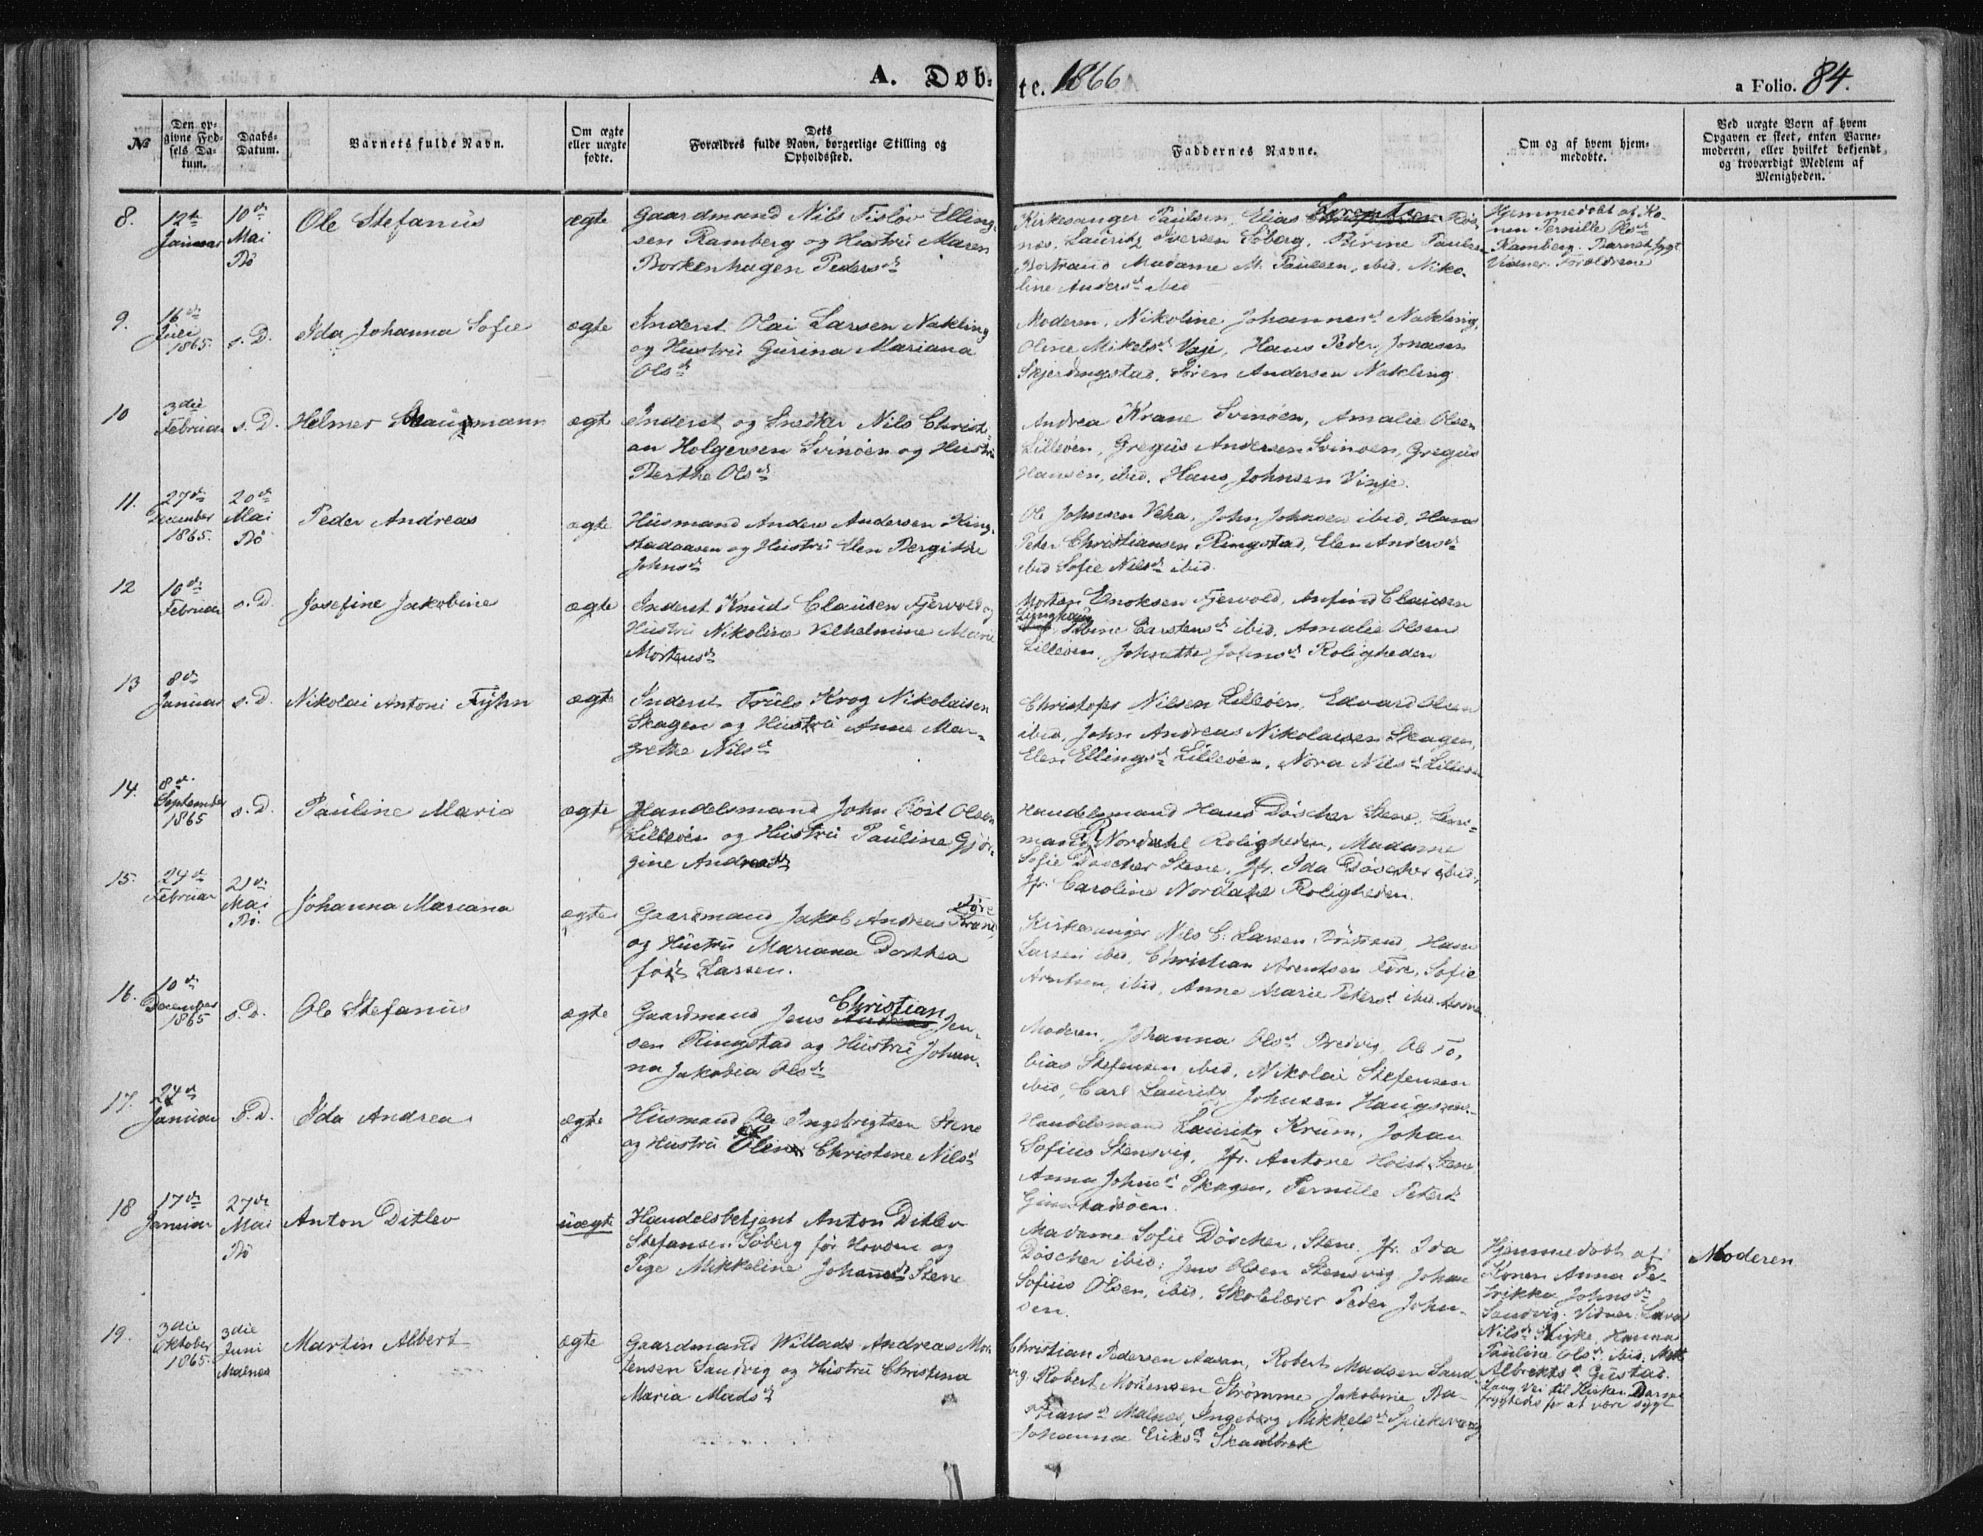 A. Døb-te. 1866 a Folio. 84.
№
Den opgivne Fødsels Datum.
Daabs-Datum.
Barnets fulde Navn.
Om ægte eller uægte fødte.
Dets Forældres fulde Navn, borgerlige Stilling og Opholdssted.
Faddernes Navne.
Om og af hvem hjemmedøbte.
Ved uægte Børn af hvem Opgaven er skeet, enten Barnemoderen, eller hvilket bekjendt og troværdigt Medlem af Menigheden.
8. 12te Januar
10de Mai Bø
Ole Stefanus
ægte
Gaardmand Nils Tislöv Elling-
sen Ramberg og Hustru Maren
Borkenhagen Pedersd
Kirkesanger Paulsen, Elias Lorentsen
Lauritz Iversen Søberg,
Madame M. Paulsen, ibid. Niko-
line Andersd ibid
Hjemmedøbt af Ko-
nen Pernille Olsd
Ramberg. Barnet sygt
Vidner. Forældrene
9. 16de Juli 1865
s. D.
Ida Johanna Sofie
ægte
Inderst Olai Larsen Nakling
og Hustru Gurina Mariana
Olsd
Moderen, Nikoline Johannesd Nakling,
Oline Mikelsd Hans Peder Jonasen
Skjeringstad, Sören Andersen Nakling
10 3die Februar
s. D.
Helmer
ægte
Inderst og Snedker Nils Christi-
an Holgersen Svinöen og Hustru
Berthe Olsd
Andrea Krane Svinöen, Amalie Olsen
Lilleöen, Gregus Andersen Svinöen, Gregus
Hansen, ibid. Hans Johnsen Vinje
11. 27de December 1865.
20de Mai Bø
Peder Andreas
ægte
Husmand Anders Andersen Ring-
stadaasen og Hustru Elen Bergitte
Johnsd
Ole Johnsen Veha, John Johnsen ibid, Hans
Peter Christiansen Ringstad, Elen Andersd
ibid Sofie Nilsd ibid.
12 10de Februar
s. D.
Josefine Jakobine
ægte
Inderst Knud Clausen Fjervold og
Hustru Nikoline Vilhelmine Marie
Mortensd
Morten Enoksen Fjervold, Anfind Clausen
Carstensd ibid, Amalie Olsen
Lilleöen, Johnsd Roligheden
13 8de Januar
s. D.
Nikolai Antoni Fyhn
ægte
Inderst Truls Krog Nikolaisen
Skagen og Hustru Anne Mar-
grethe Nilsd
Christofer Nilsen Lilleöen, Edvard Olsen
ibid, John Andreas Nikolaisen Skagen,
Elen Ellingsd Lilleöen, Nora Nilsd Lilleöen
14. 8de September 1865
s. D.
Pauline Maria
ægte
Handelsmand John Röst Olsen
Lilleöen og Hustru Pauline Gjör-
gine Andreasd
Handelsmand Hans Döscher Stene, Lens-
mand Nordahl Roligheden, Madame
Sofie Döscher Stene, Jfr. Ida Döscher ibid,
Jfr. Caroline Nordahl Roligheden.
15. 24de Februar
21de Mai Bø.
Johanna Mariana
ægte
Gaardmand Jakob Andreas Före
og Hustru Mariana Dorthea
född Larsen.
Kirkesanger Nils C. Larsen Hans
Larsen ibid, Christian Arentsen Före, Sofie
Arentsen, ibid, Anne Marie Petersd ibid
16. 10de December 1865
s. D.
Ole Stefanus
ægte
Gaardmand Jens Christian Jen-
sen Ringstad og Hustru Johan-
na Jakobia Olsd
Moderen, Johanna Olsd Bredvig, Ole To-
bias Stefensen ibid, Nikolai Stefensen
ibid, Carl Lauritz Johnsen
17. 24de Januar
s. D.
Ida Andrea
ægte
Husmand Ole Ingebrigtsen Stene
og Hustru Christine Nilsd
Handelsmand Lauritz Krum, Johan
Sofius Stensvig, Jfr. Antone Höist Stene
Anna Johnsd Skagen, Pernille Petersd
Gimstadöen.
18 17de Januar
27de Mai Bø
Anton Ditlev
uægte
Handelsbetjent Anton Ditlev
Stefansen Söberg för Hovden og
Pige Mikkeline Johannesd Stene
Madame Sofie Döscher, Stene, Jfr. Ida
Döscher ibid, Jens Olsen Stensvig Johan
Sofius Olsen, ibid, Skolelærer Peder John-
sen.
Hjemmedøbt af
Konen Anna Pe-
trikka Johnsd
Sandvig. Vidner
Moderen
19. 3die Oktober 1865.
3die Juni Malnes
Martin Albert
ægte
Gaardmand Willads Andreas Mor-
tensen Sandvig og Hustru Christina
Maria Madsd
Christian Pedersen Aasan, Robert Madsen Sand
vig. Robert Mortensen Strömme Jakobine
Malnes, Ingeborg Mikkelsd
Johanna Eriksd
Nilsd Hanna
Pauline Olsd ibid.
Albrektsd Gustad.
Lang Vei til Kirken
frygtedes for at være sygt